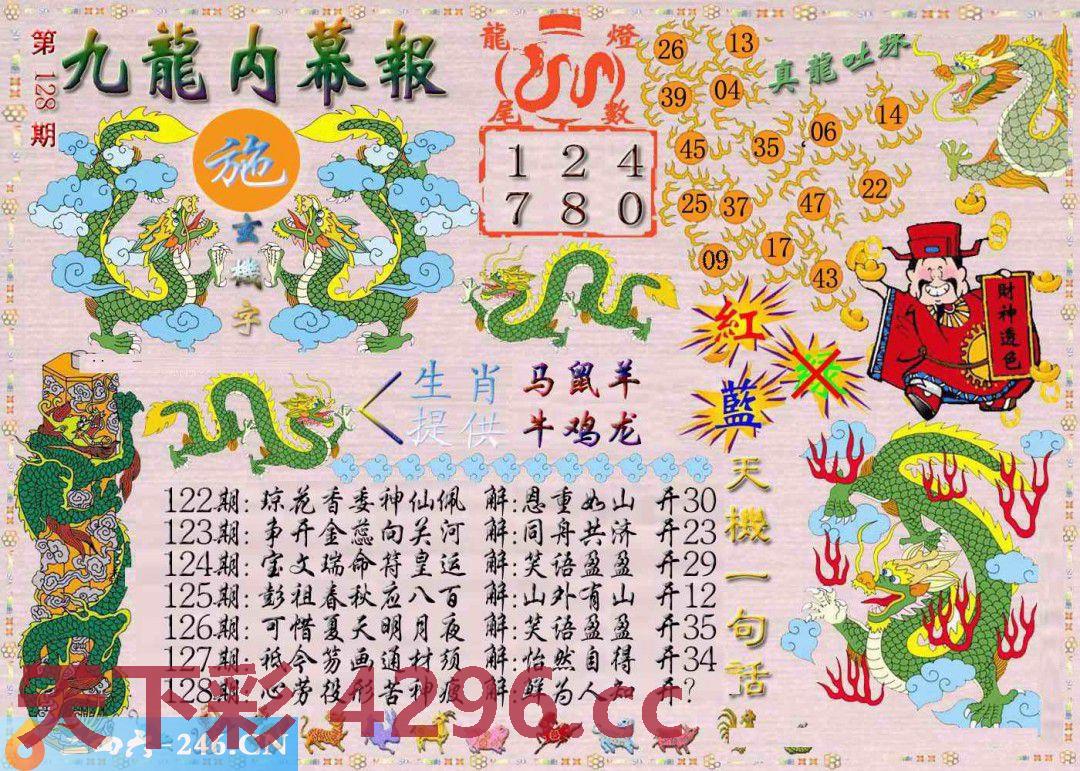 第128期
九龍内幕報
龍燈
尾數
1 2 4
7 8 0
真龍吐珠
26 13
39 04
45 35 06 14
25 37 47 22
09 17 43
施
玄機字
財神透色
紅
藍
生肖 马鼠羊
提供 牛鸡龙
天機一句話
122期: 琼花香委神仙佩 解:恩重如山 开30
123期: 争开金蕊向关河 解:同舟共济 开23
124期: 宝文瑞命符皇运 解:笑语盈盈 开29
125期: 彭祖春秋应八百 解:山外有山 开12
126期: 可惜夏天明月夜 解:笑语盈盈 开35
127期: 祗今笏画通材须 解:怡然自得 开34
128期: 心劳役形苦神瘦 解:鲜为人知 开?
天下彩 4296.cc
=246.CN